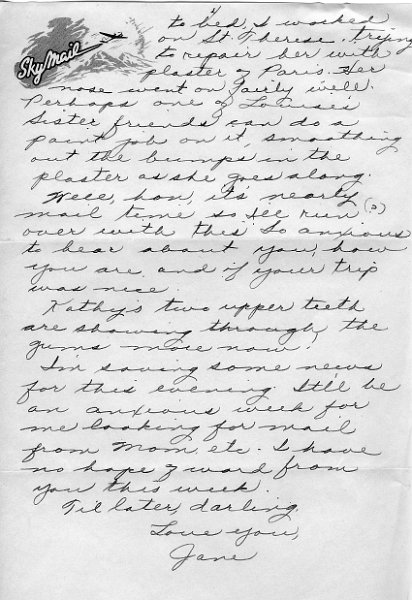 Sky Mail
to bed, I worked
on St. Therese, trying
to repair her with
plaster of Paris. Her
nose went on fairly well.
Perhaps one of Louise's
Sister friends can do a
paint job on it, smoothing
out the bumps in the
plaster as she goes along.
Well, hon, it's nearly
mail time so I'll run (?)
over with this. So anxious
to hear about you, how
you are and if your trip
was nice.
Kathy's two upper teeth
are showing through the
gums more now.
I'm saving some news
for this evening. It'll be
an anxious week for
me looking for mail
from Mom, etc. I have
no hope of word from
you this week.
'Til later, darling
Love you,
Jane